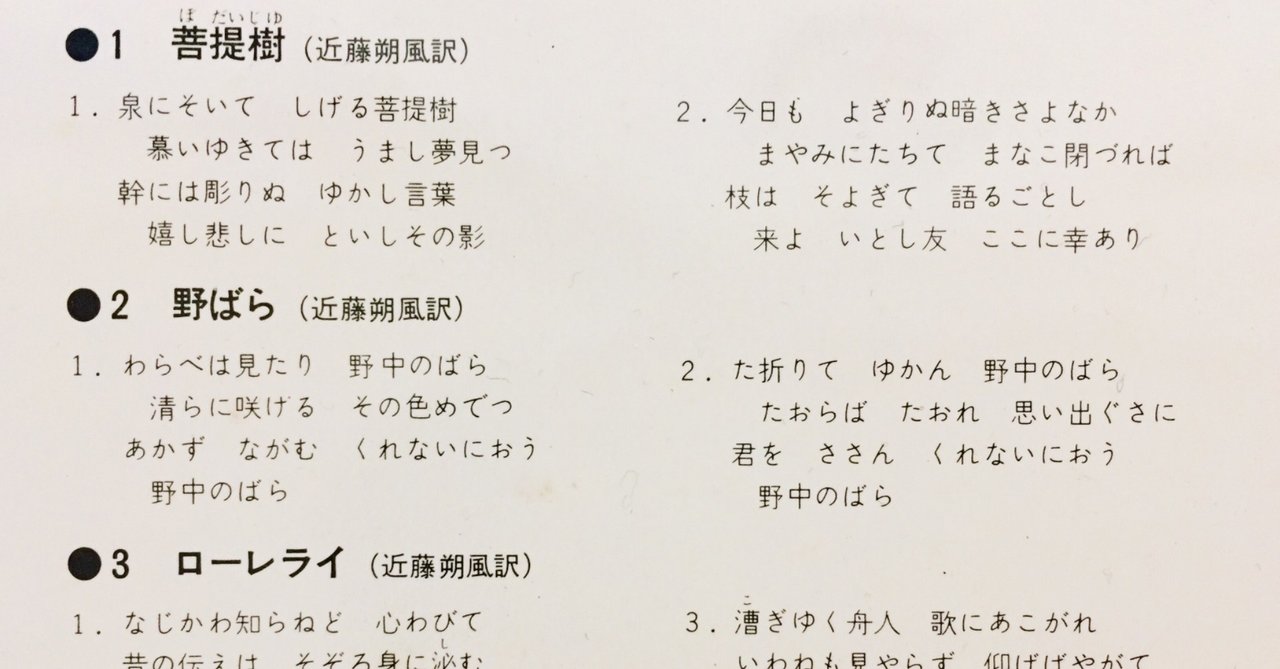 ぼだいじゆ
●1 菩提樹(近藤朔風訳)
1. 泉にそいて しげる菩提樹
慕いゆきては うまし夢見つ
幹には彫りぬ ゆかし言葉
嬉し悲しに といしその影
2. 今日も よぎりぬ暗きさよなか
まやみにたちて まなこ閉づれば
枝は そよぎて 語るごとし
来よ いとし友 ここに幸あり
●2 野ばら(近藤朔風訳)
1. わらべは見たり 野中のばら
清らに咲ける その色めでつ
あかず ながむ くれないにおう
野中のばら
2. た折りて ゆかん 野中のばら
たおらば たおれ 思い出ぐさに
君を ささん くれないにおう
野中のばら
●3 ローレライ(近藤朔風訳)
1. なじかわ知らねど 心わびて
し
昔の伝えは そぞろ身に泌む
こ
3. 漕ぎゆく舟人 歌にあこがれ
いわねも見やらず 仰げばやがて